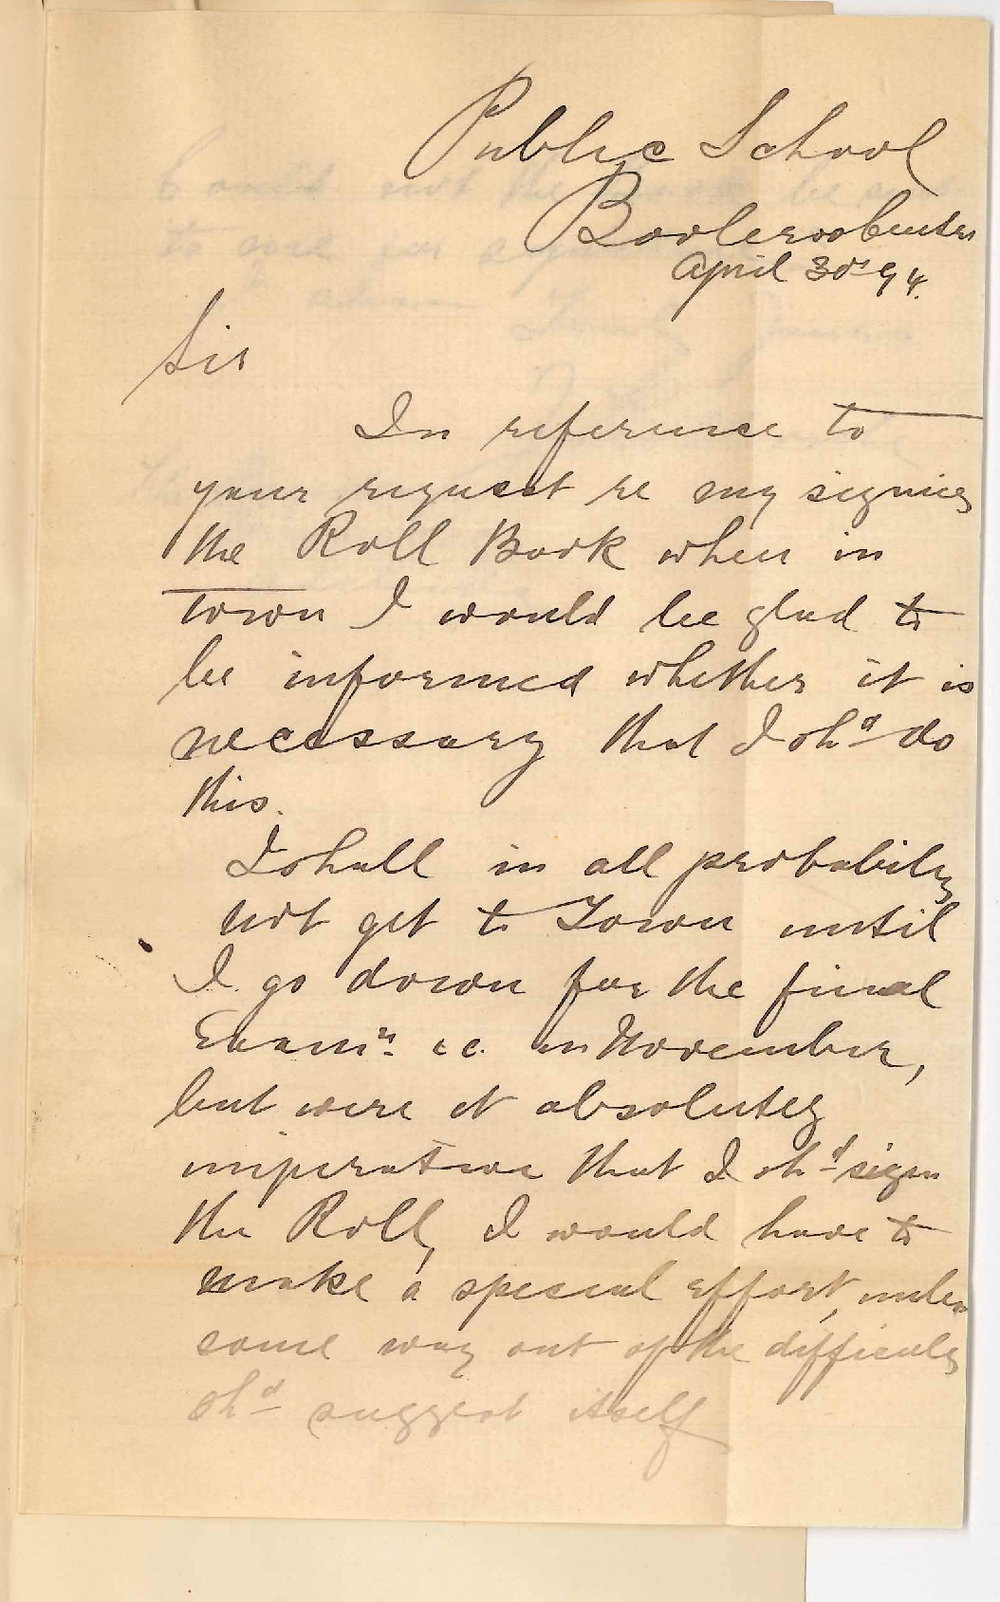 Public School
Booleroo Centre
April 30th 94.
Sir
In reference to
your request re my signing
the Roll Book when in
town I would be glad to
be informed whether it is
necessary that I shd do
this.
I shall in all probability
not get to Town until
I go down for the final
Examn. &c. in November,
but were it absolutely
imperative that I shd sign
the Roll, I would have to
make a special effort, unless
some way out of the difficulty
shd suggest itself